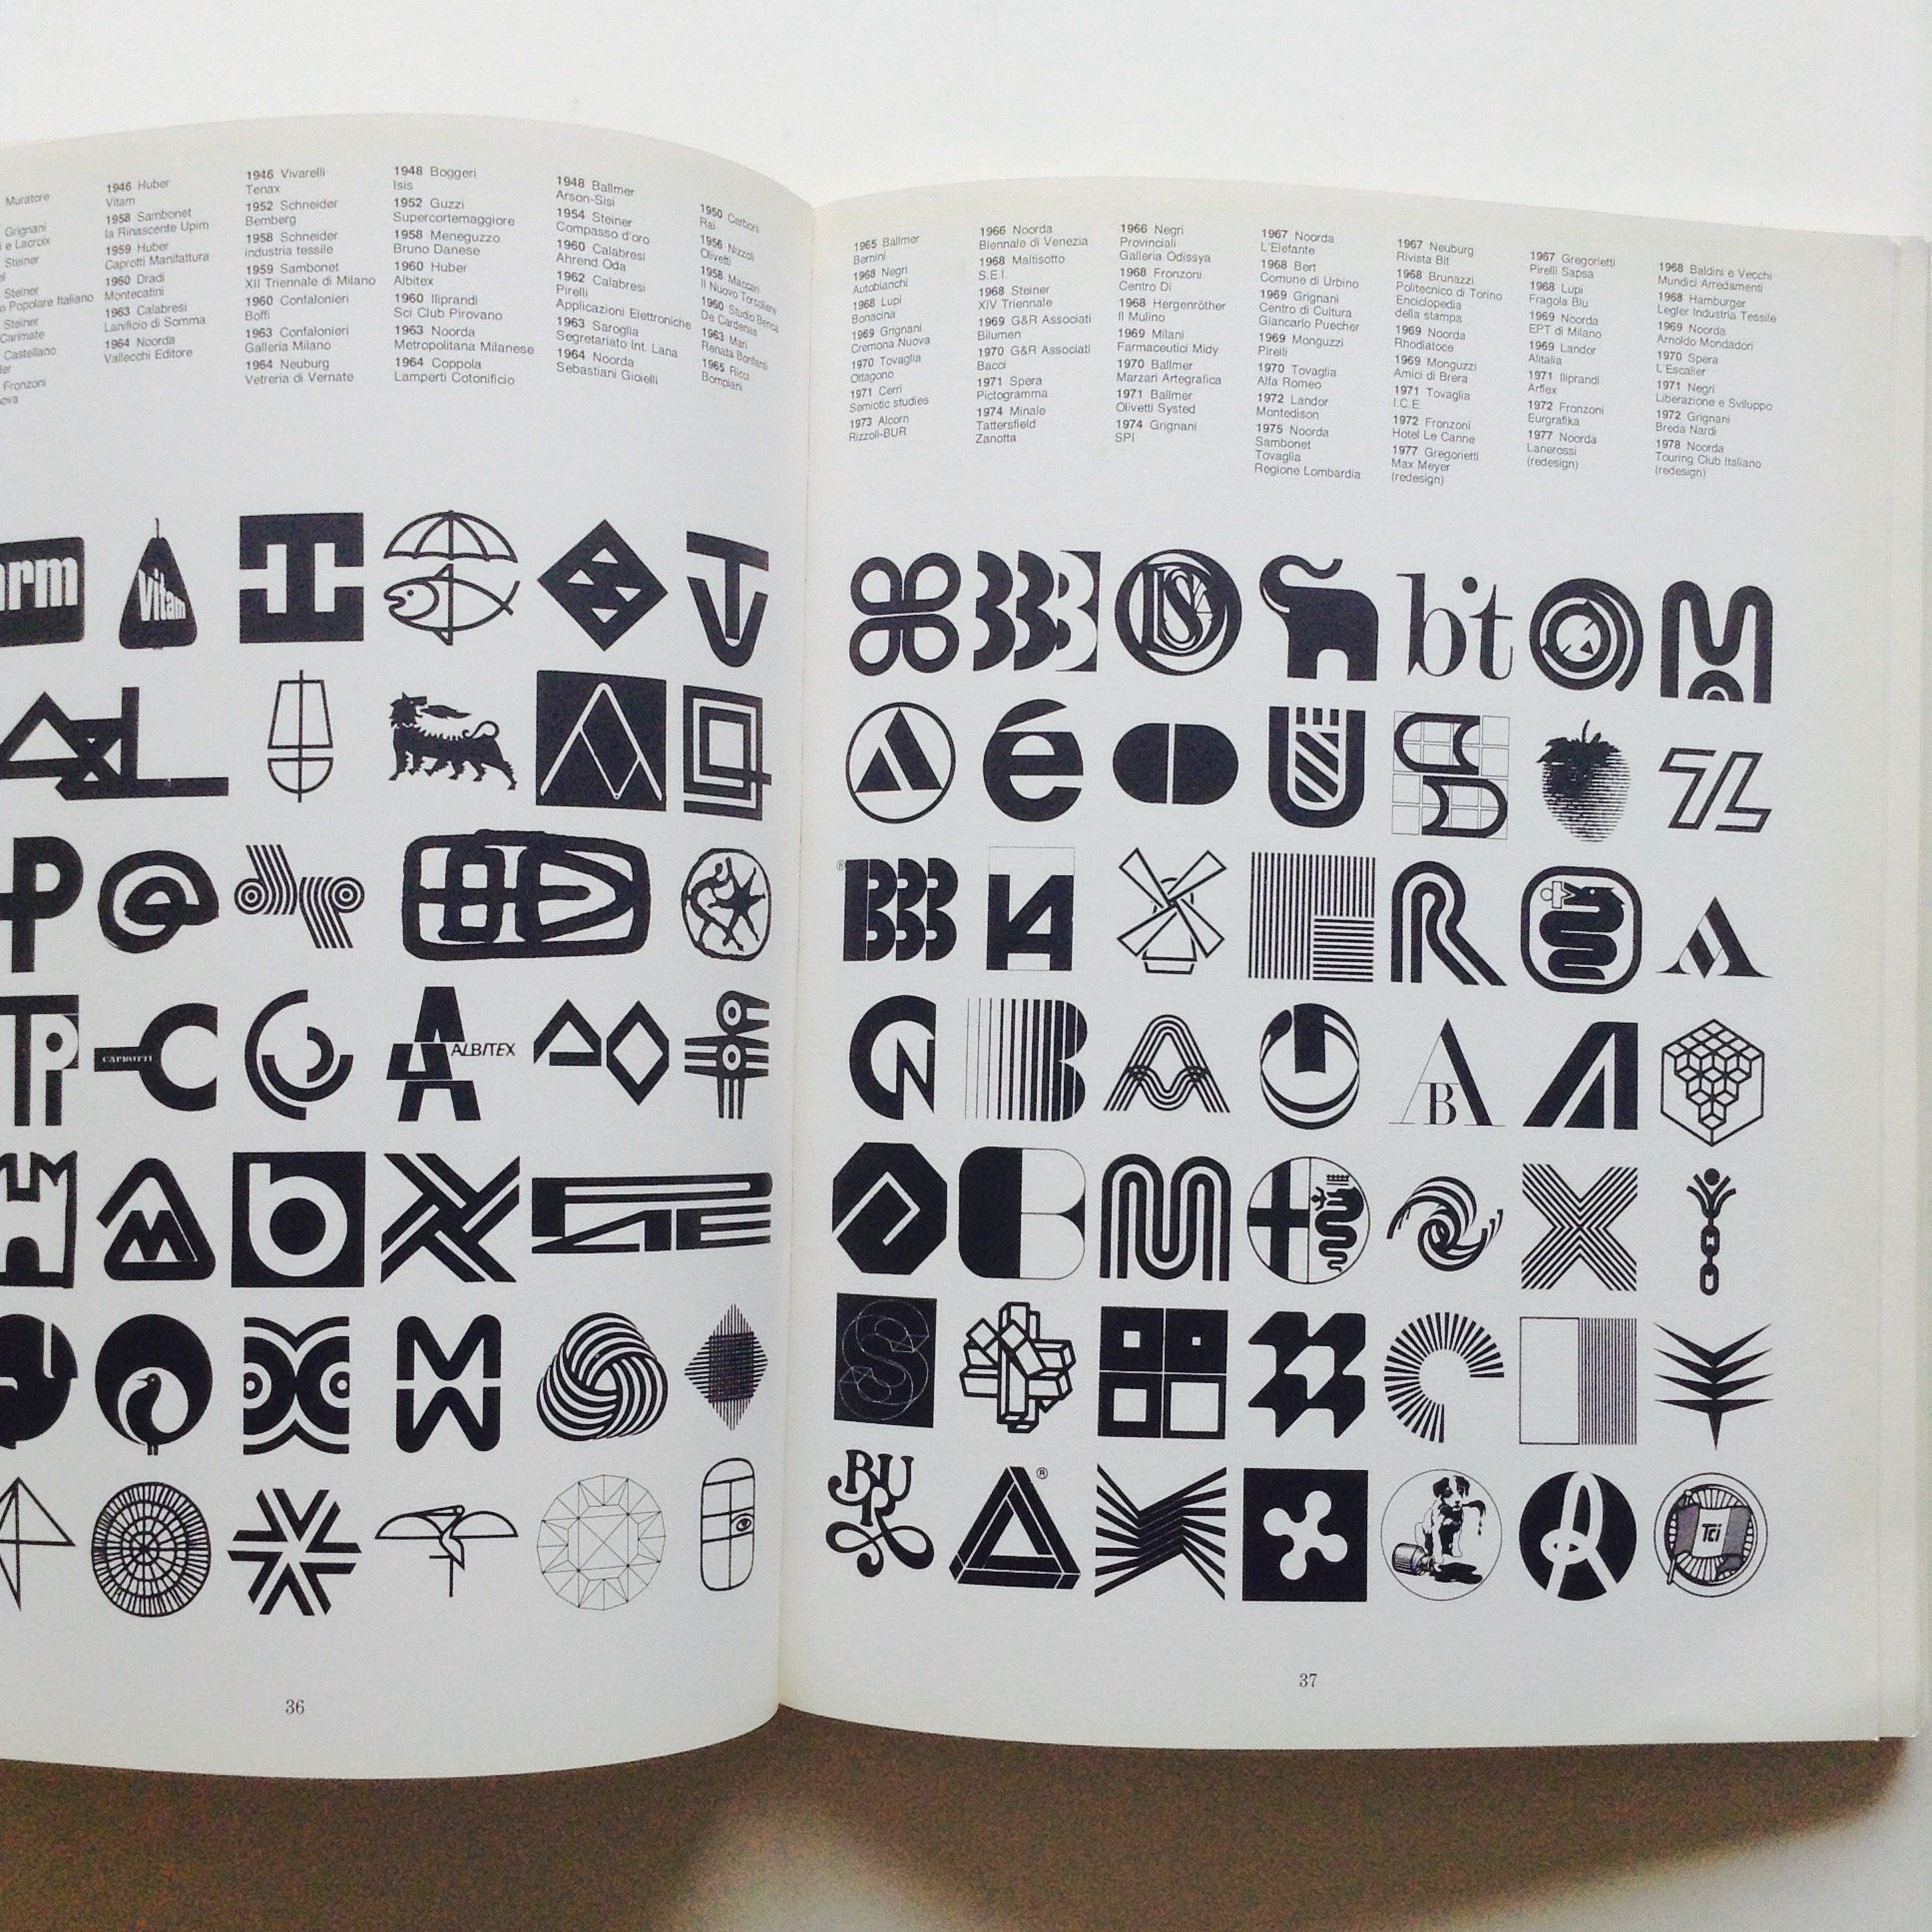 Muratore
Grignani
i e Lacroix
Steiner
Steiner
o Popolare Italiano
Steiner
Carimate
Castellano
Fronzoni
1946 Huber
Vitam
1958 Sambonet
la Rinascente Upim
1959 Huber
Caprotti Manifattura
1960 Dradi
Montecatini
1963 Calabresi
Lanificio di Somma
1964 Noorda
Vallecchi Editore
1946 Vivarelli
Tenax
1952 Schneider
Bemberg
1958 Schneider
industria tessile
1959 Sambonet
XII Triennale di Milano
1960 Confalonieri
Boffi
1963 Confalonieri
Galleria Milano
1964 Neuburg
Vetreria di Vernate
1948 Boggeri
Isis
1952 Guzzi
Supercortemaggiore
1958 Meneguzzo
Bruno Danese
1960 Huber
Albitex
1960 Iliprandi
Sci Club Pirovano
1963 Noorda
Metropolitana Milanese
1964 Coppola
Lamperti Cotonificio
1948 Ballmer
Arson-Sisi
1954 Steiner
Compasso d'oro
1960 Calabresi
Ahrend Oda
1962 Calabresi
Pirelli
Applicazioni Elettroniche
1963 Saroglia
Segretariato Int. Lana
1964 Noorda
Sebastiani Gioielli
1950 Carboni
Rai
1956 Nizzoli
Olivetti
1958 Maccari
Il Nuovo Torcoliere
1960 Studio Benca
De Cardenas
1963 Mari
Renata Bonfanti
1965 Ricci
Bompiani
1965 Ballmer
Bernini
1968 Negri
Autobianchi
1968 Lupi
Bonacina
1969 Grignani
Cremona Nuova
1970 Tovaglia
Ottagono
1971 Cerri
Semiotic studies
1973 Alcorn
Rizzoli-BUR
1966 Noorda
Biennale di Venezia
1968 Maltisotto
S.E.I.
1968 Steiner
XIV Triennale
1969 G&R Associati
Bilumen
1970 G&R Associati
Bacci
1971 Spera
Pictogramma
1974 Minale
Tattersfield
Zanotta
1966 Negri
Provinciali
Galleria Odissya
1968 Fronzoni
Centro Di
1968 Hergenröther
Il Mulino
1969 Milani
Farmaceutici Midy
1970 Ballmer
Marzari Artegrafica
1971 Ballmer
Olivetti Systed
1974 Grignani
SPI
1967 Noorda
L'Elefante
1968 Bert
Comune di Urbino
1969 Grignani
Centro di Cultura
Giancarlo Puecher
1969 Monguzzi
Pirelli
1970 Tovaglia
Alfa Romeo
1972 Landor
Montedison
1975 Noorda
Sambonet
Tovaglia
Regione Lombardia
1967 Neuburg
Rivista Bit
1968 Brunazzi
Politecnico di Torino
Enciclopedia
della stampa
1969 Noorda
Rhodiatoce
1969 Monguzzi
Amici di Brera
1971 Tovaglia
I.C.E.
1972 Fronzoni
Hotel Le Canne
1977 Gregorietti
Max Meyer
(redesign)
1967 Gregorietti
Pirelli Sapsa
1968 Lupi
Fragola Blu
1969 Noorda
EPT di Milano
1969 Landor
Alitalia
1971 Iliprandi
Arflex
1972 Fronzoni
Eurgrafika
1977 Noorda
Lanerossi
(redesign)
1968 Baldini e Vecchi
Mundici Arredamenti
1968 Hamburger
Legler Industria Tessile
1969 Noorda
Arnoldo Mondadori
1970 Spera
L'Escalier
1971 Negri
Liberazione e Sviluppo
1972 Grignani
Breda Nardi
1978 Noorda
Touring Club Italiano
(redesign)
arm
Vitam
CAPROTTI
ALBITEX
bit
é
AB
BUR
Tci
36
37